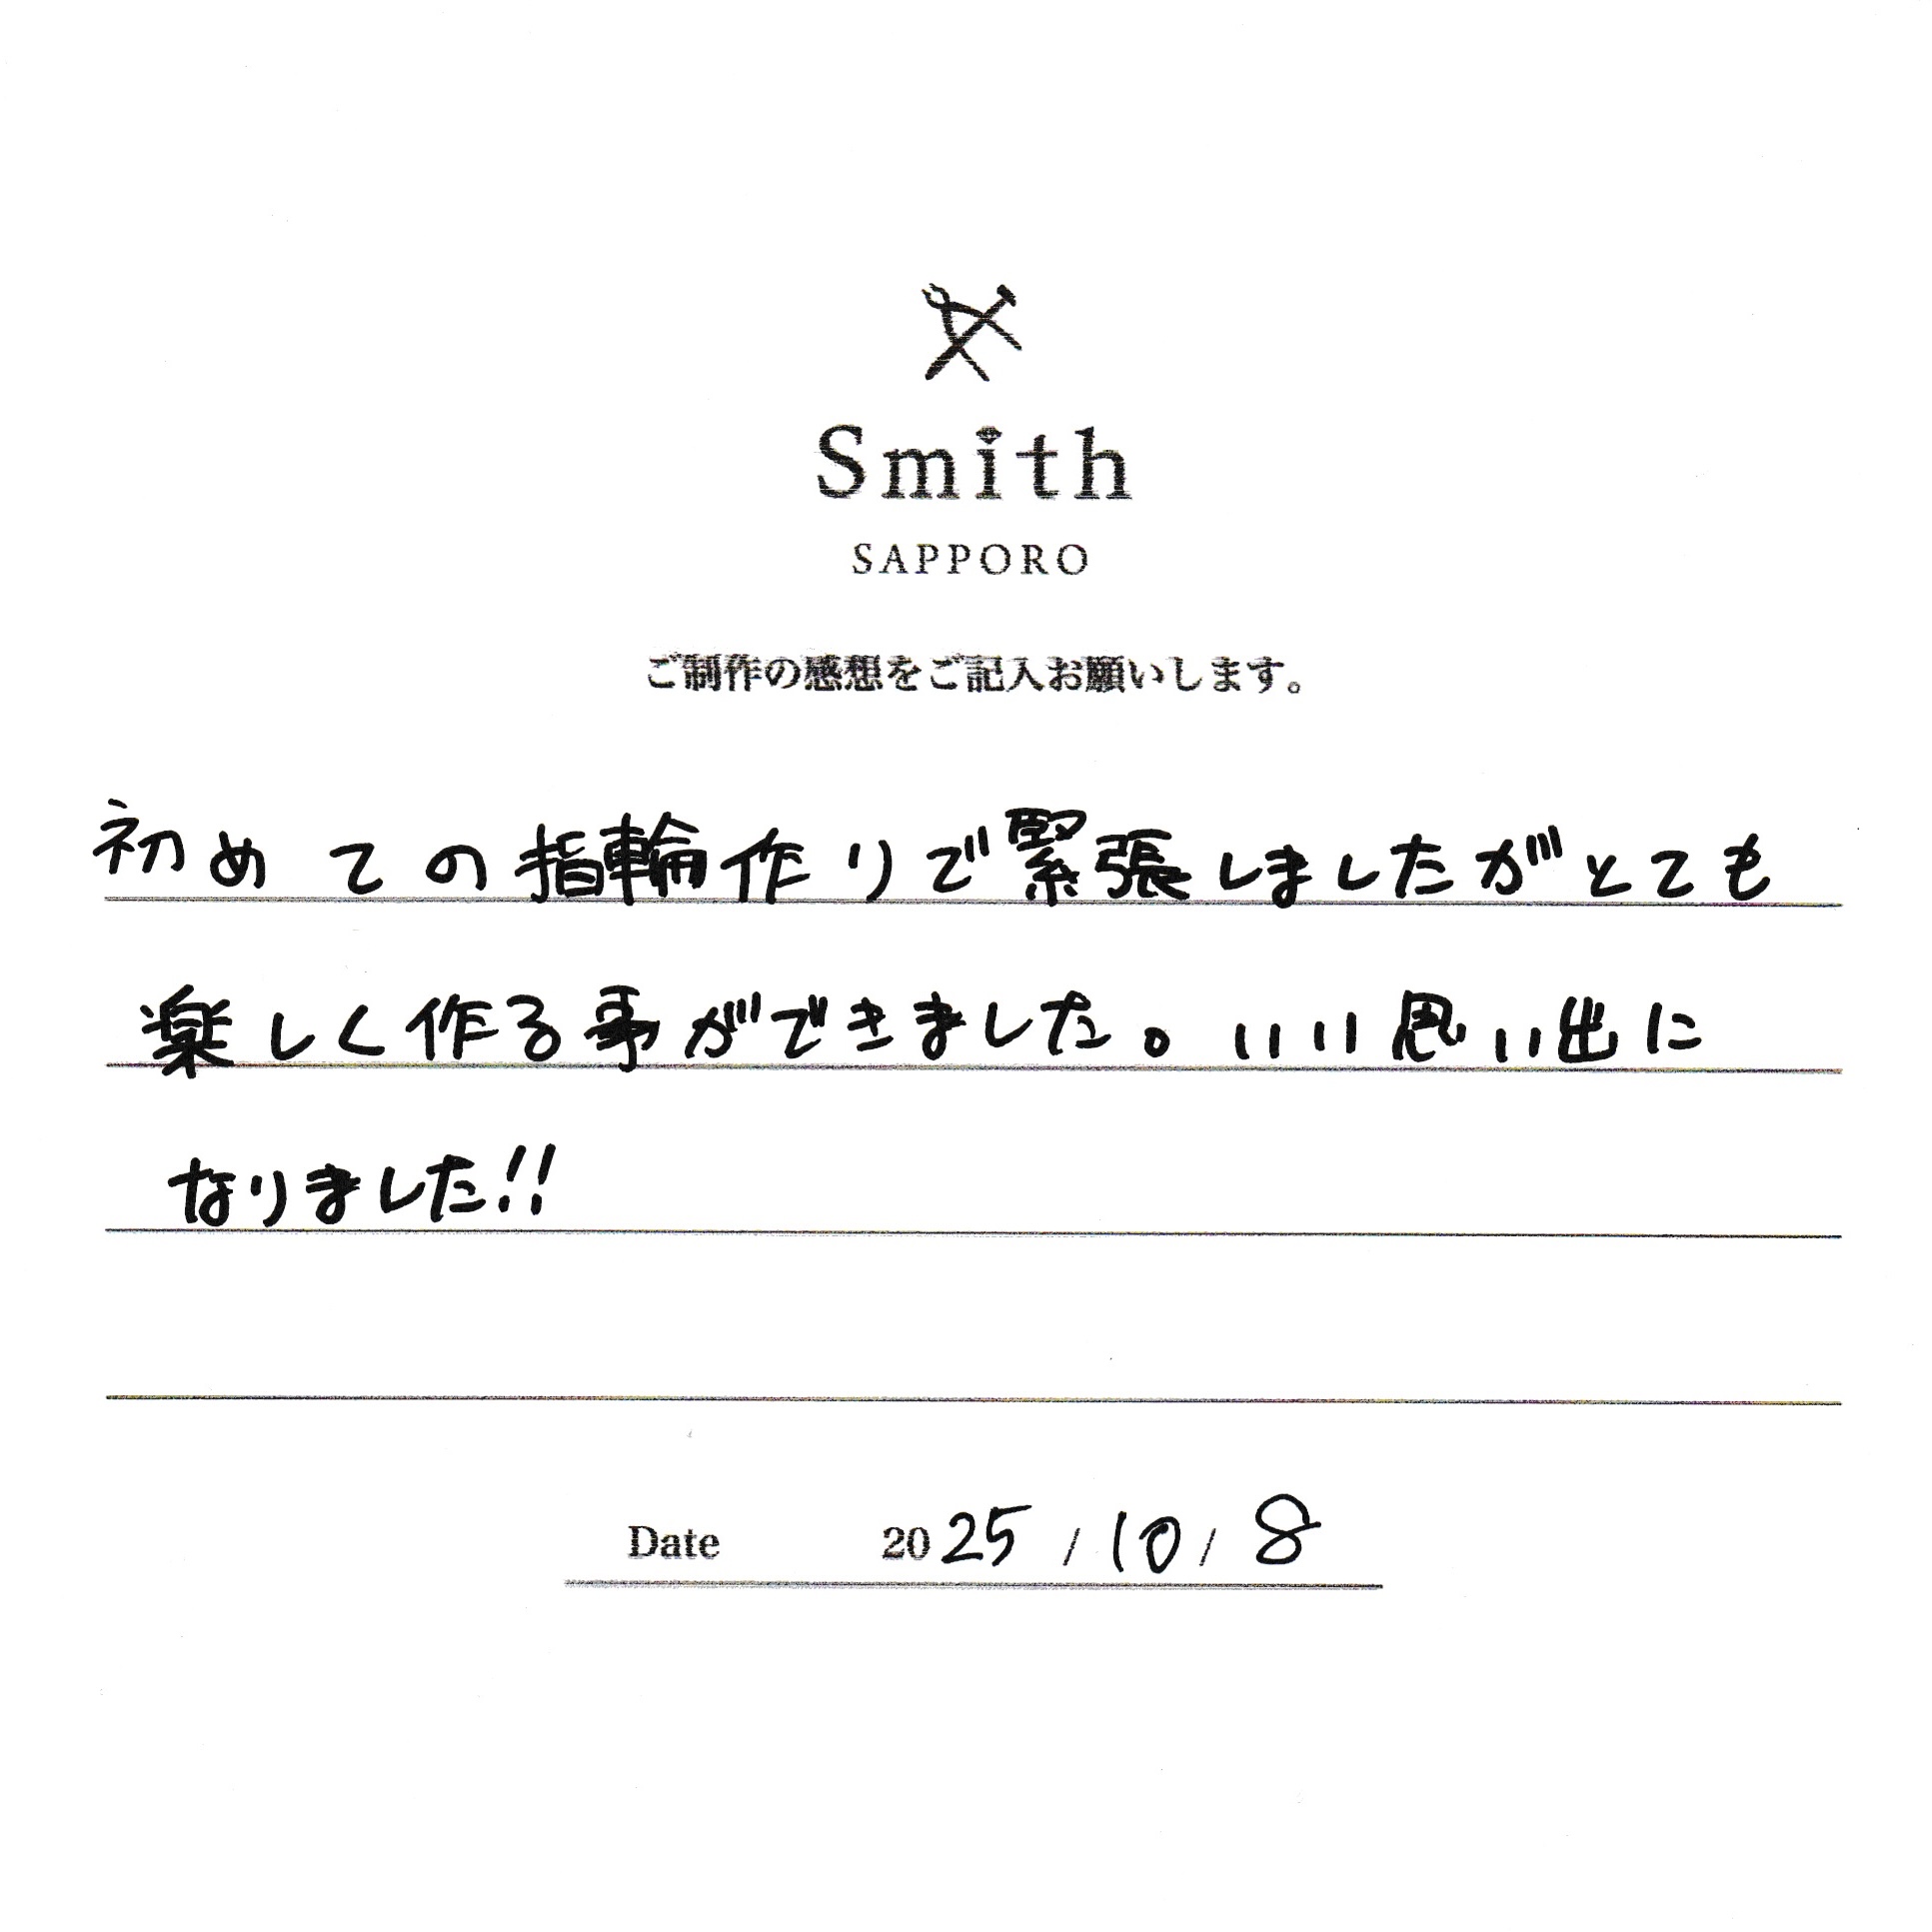 Smith
SAPPORO
ご制作の感想をご記入お願いします。
初めての指輪作りで緊張しましたがとても
楽しく作る事ができました。いい思い出に
なりました!!
Date 2025/10/8